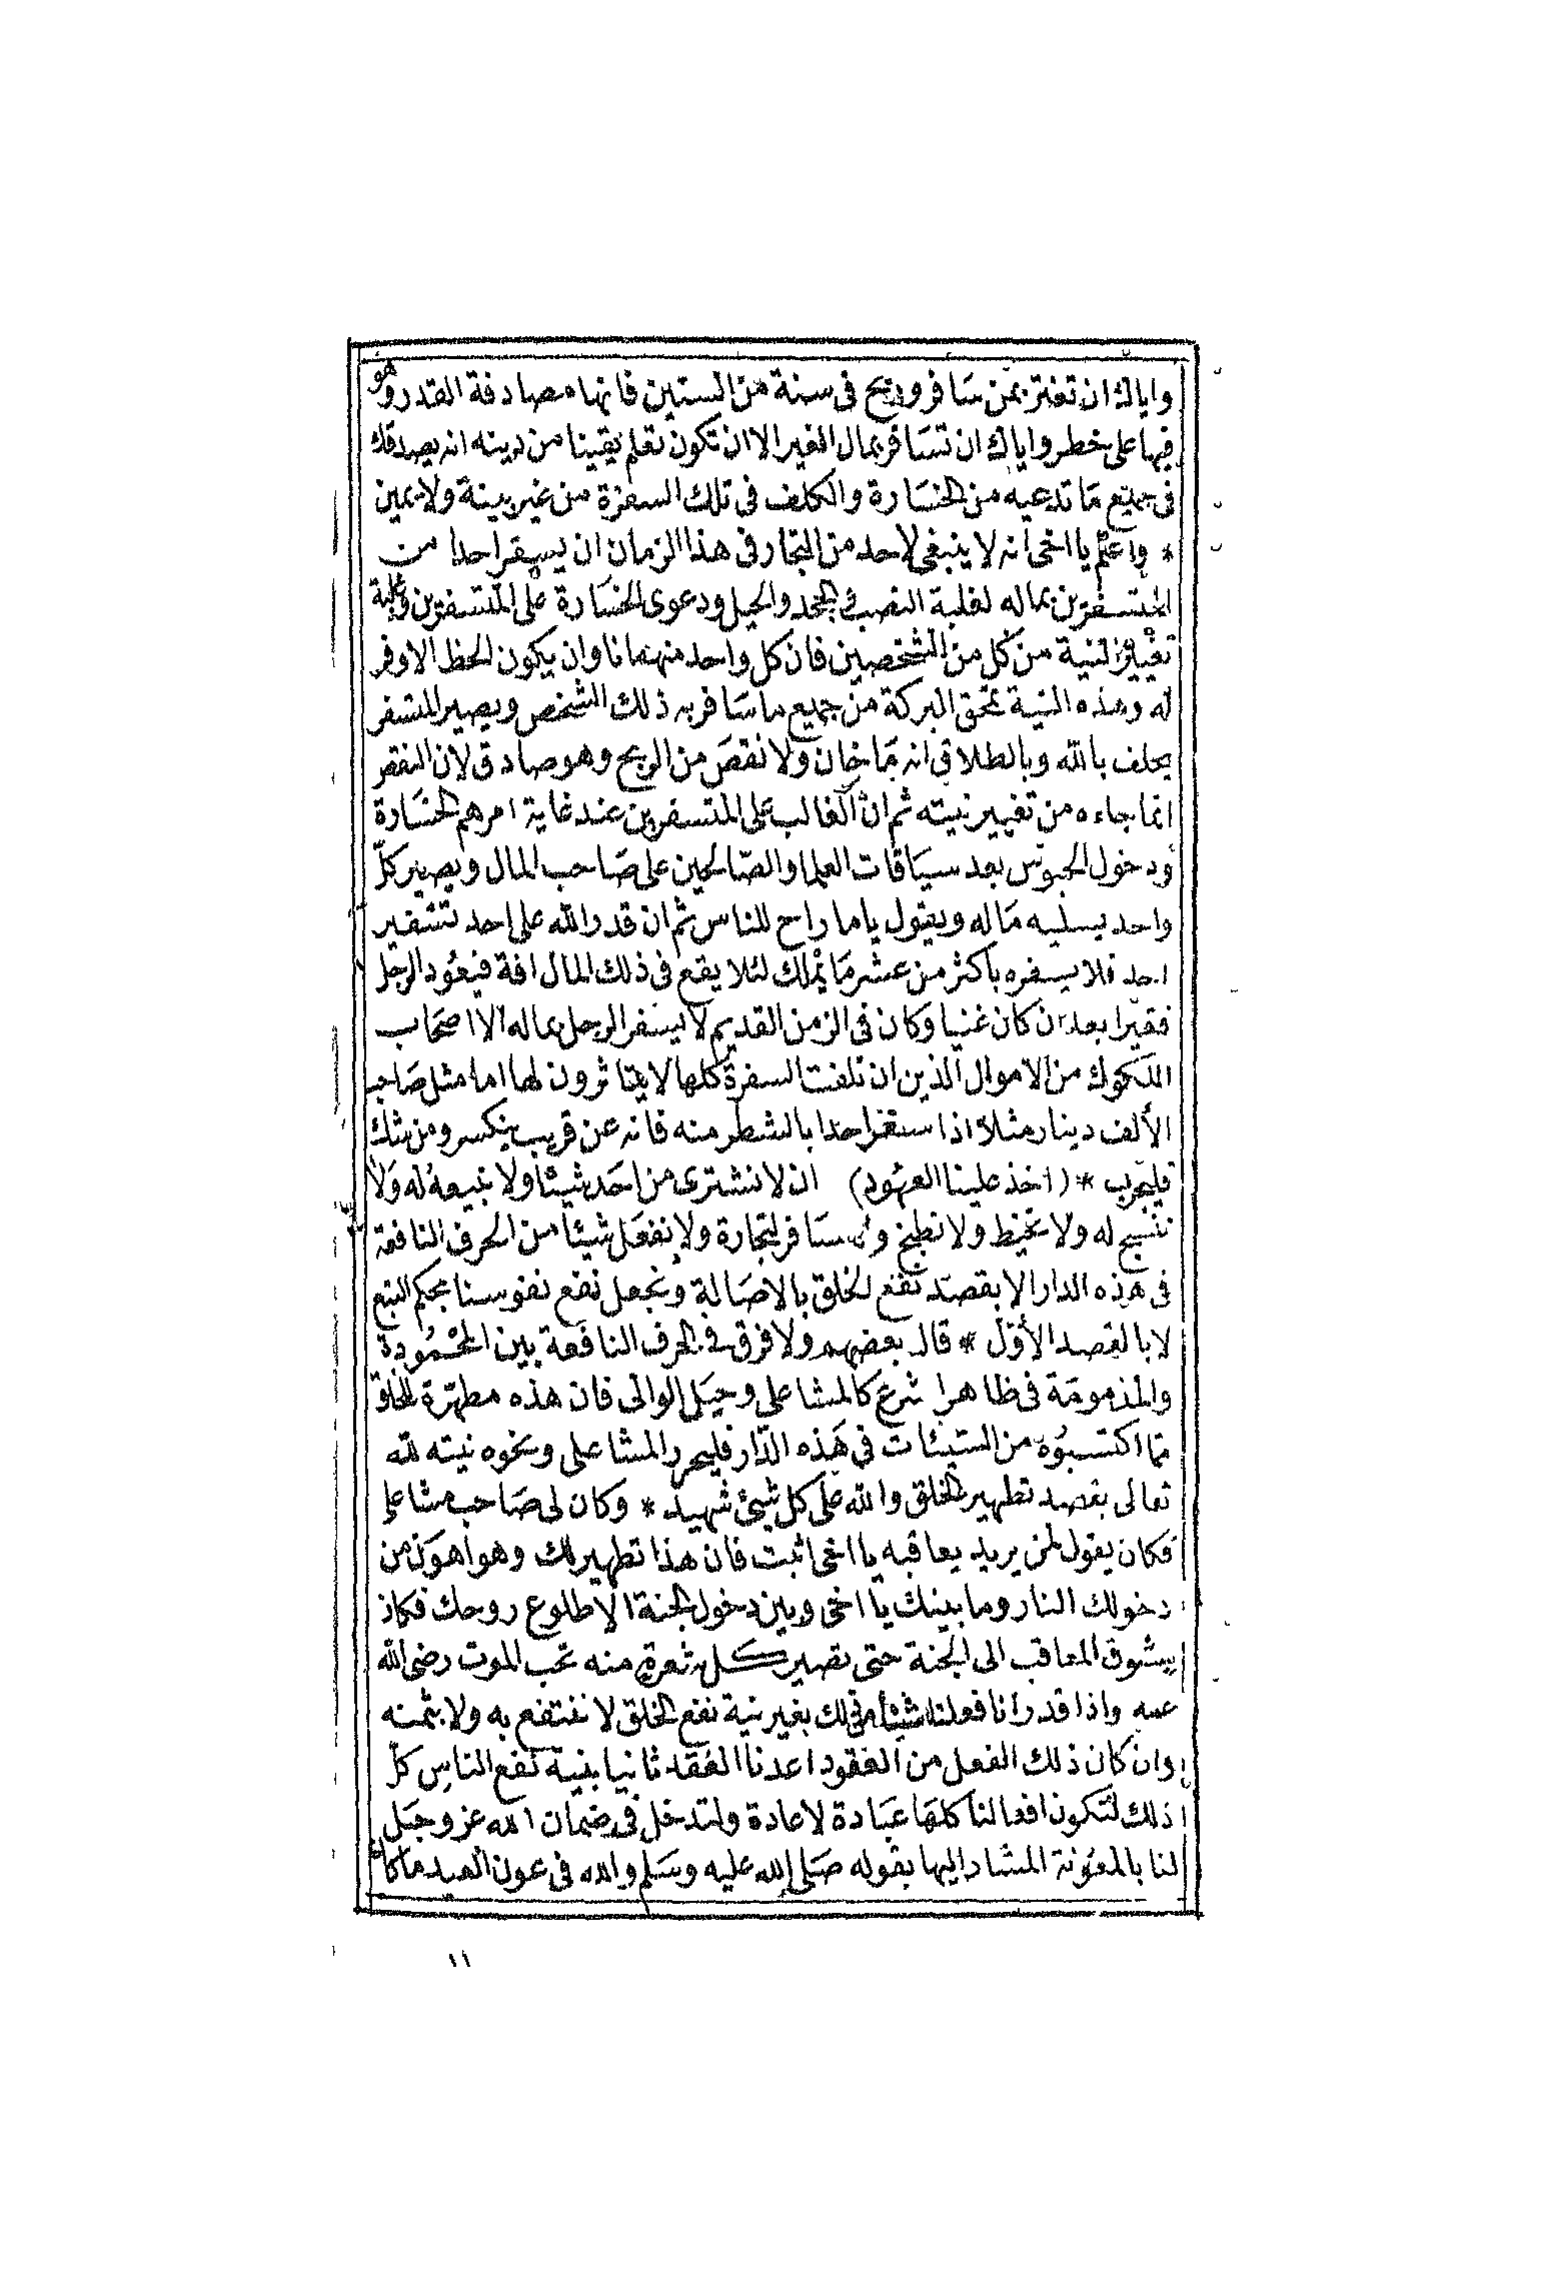 واياك ان تغتر بمن سافر وربح فى سنة من السنين فانها مصادفة القدر وهو
فيها على خطر واياك ان تسافر بمال الغير الا ان تكون تعلم يقينا من دينه انه يصدقك
فى جميع ما تدعيه من الخسارة والكلف فى تلك السفرة من غير بينة ولا يمين
* واعلم يا اخى انه لا ينبغى لاحد من التجار فى هذا الزمان ان يسفر احدا من
المتسفرين بماله لغلبة النصب فى الجحد والحيل ودعوى الخسارة على المتسفرين وغلبة
تغيير النية من كل من الشخصين فان كل واحد منهما ناو ان يكون الحظ الاوفر
له وهذه النية تمحق البركة من جميع ما سافر به ذلك الشخص ويصير المتسفر
يحلف بالله وبالطلاق انه ما خان ولا نقص من الربح وهو صادق لان النقص
انما جاءه من تغيير نيته ثم ان الغالب على المتسفرين عند غاية امرهم الخسارة
ودخول الحبوس بعد سياقات العلما والصالحين على صاحب المال ويصير كل
واحد يسليه ماله ويقول ياما راح للناس ثم ان قدر الله على احد تسفير
احد فلا يسفره باكثر من عشر ما يملك لئلا يقع فى ذلك المال افة فيعود الرجل
فقيرا بعد ان كان غنيا وكان فى الزمن القديم لا يسفر الرجل بماله الا اصحاب
اللكوك من الاموال الذين ان تلفت السفرة كلها لا يتاثرون لها اما مثل صاحب
الألف دينار مثلا اذا سفر احدا بالشطر منه فانه عن قريب ينكسر ومن شك
فليجرب * (اخذ علينا العهود) ان لا نشترى من احد شيئا ولا نبيعه له ولا
ننسج له ولا نخيط ولا نطبخ ولا نسافر لتجارة ولا نفعل شيئا من الحرف النافعة
فى هذه الدار الا بقصد نفع الخلق بالاصالة ونجعل نفع نفوسنا بحكم التبع
لا بالقصد الأول * قال بعضهم ولا فرق فى الحرف النافعة بين المحمودة
والمذمومة فى ظاهر الشرع كالمشاعلى وحيل الوالى فان هذه مطهرة للخلق
مما اكتسبوه من السيئات فى هذه الدار فليحرر المشاعلى ونحوه نيته لله
تعالى بقصد تطهير الخلق والله على كل شيئ شهيد * وكان لى صاحب مشاعلى
فكان يقول لمن يريد يعاقبه يا اخى اثبت فان هذا تطهير لك وهو اهون من
دخولك النار وما بينك يا اخى وبين دخول الجنة الا طلوع روحك فكان
يشوق المعاقب الى الجنة حتى تصير كل شعرة منه تحب الموت رضى الله
عنه واذا قدر اننا فعلنا شيئا من ذلك بغير نية نفع الخلق لا ننتفع به ولا بثمنه
وان كان ذلك الفعل من العقود اعدنا العقد ثانيا بنية نفع الناس كل
ذلك لتكون افعالنا كلها عبادة لا عادة ولندخل فى ضمان الله عز وجل
لنا بالمعونة المشار اليها بقوله صلى الله عليه وسلم والله فى عون العبد ما كان
١١